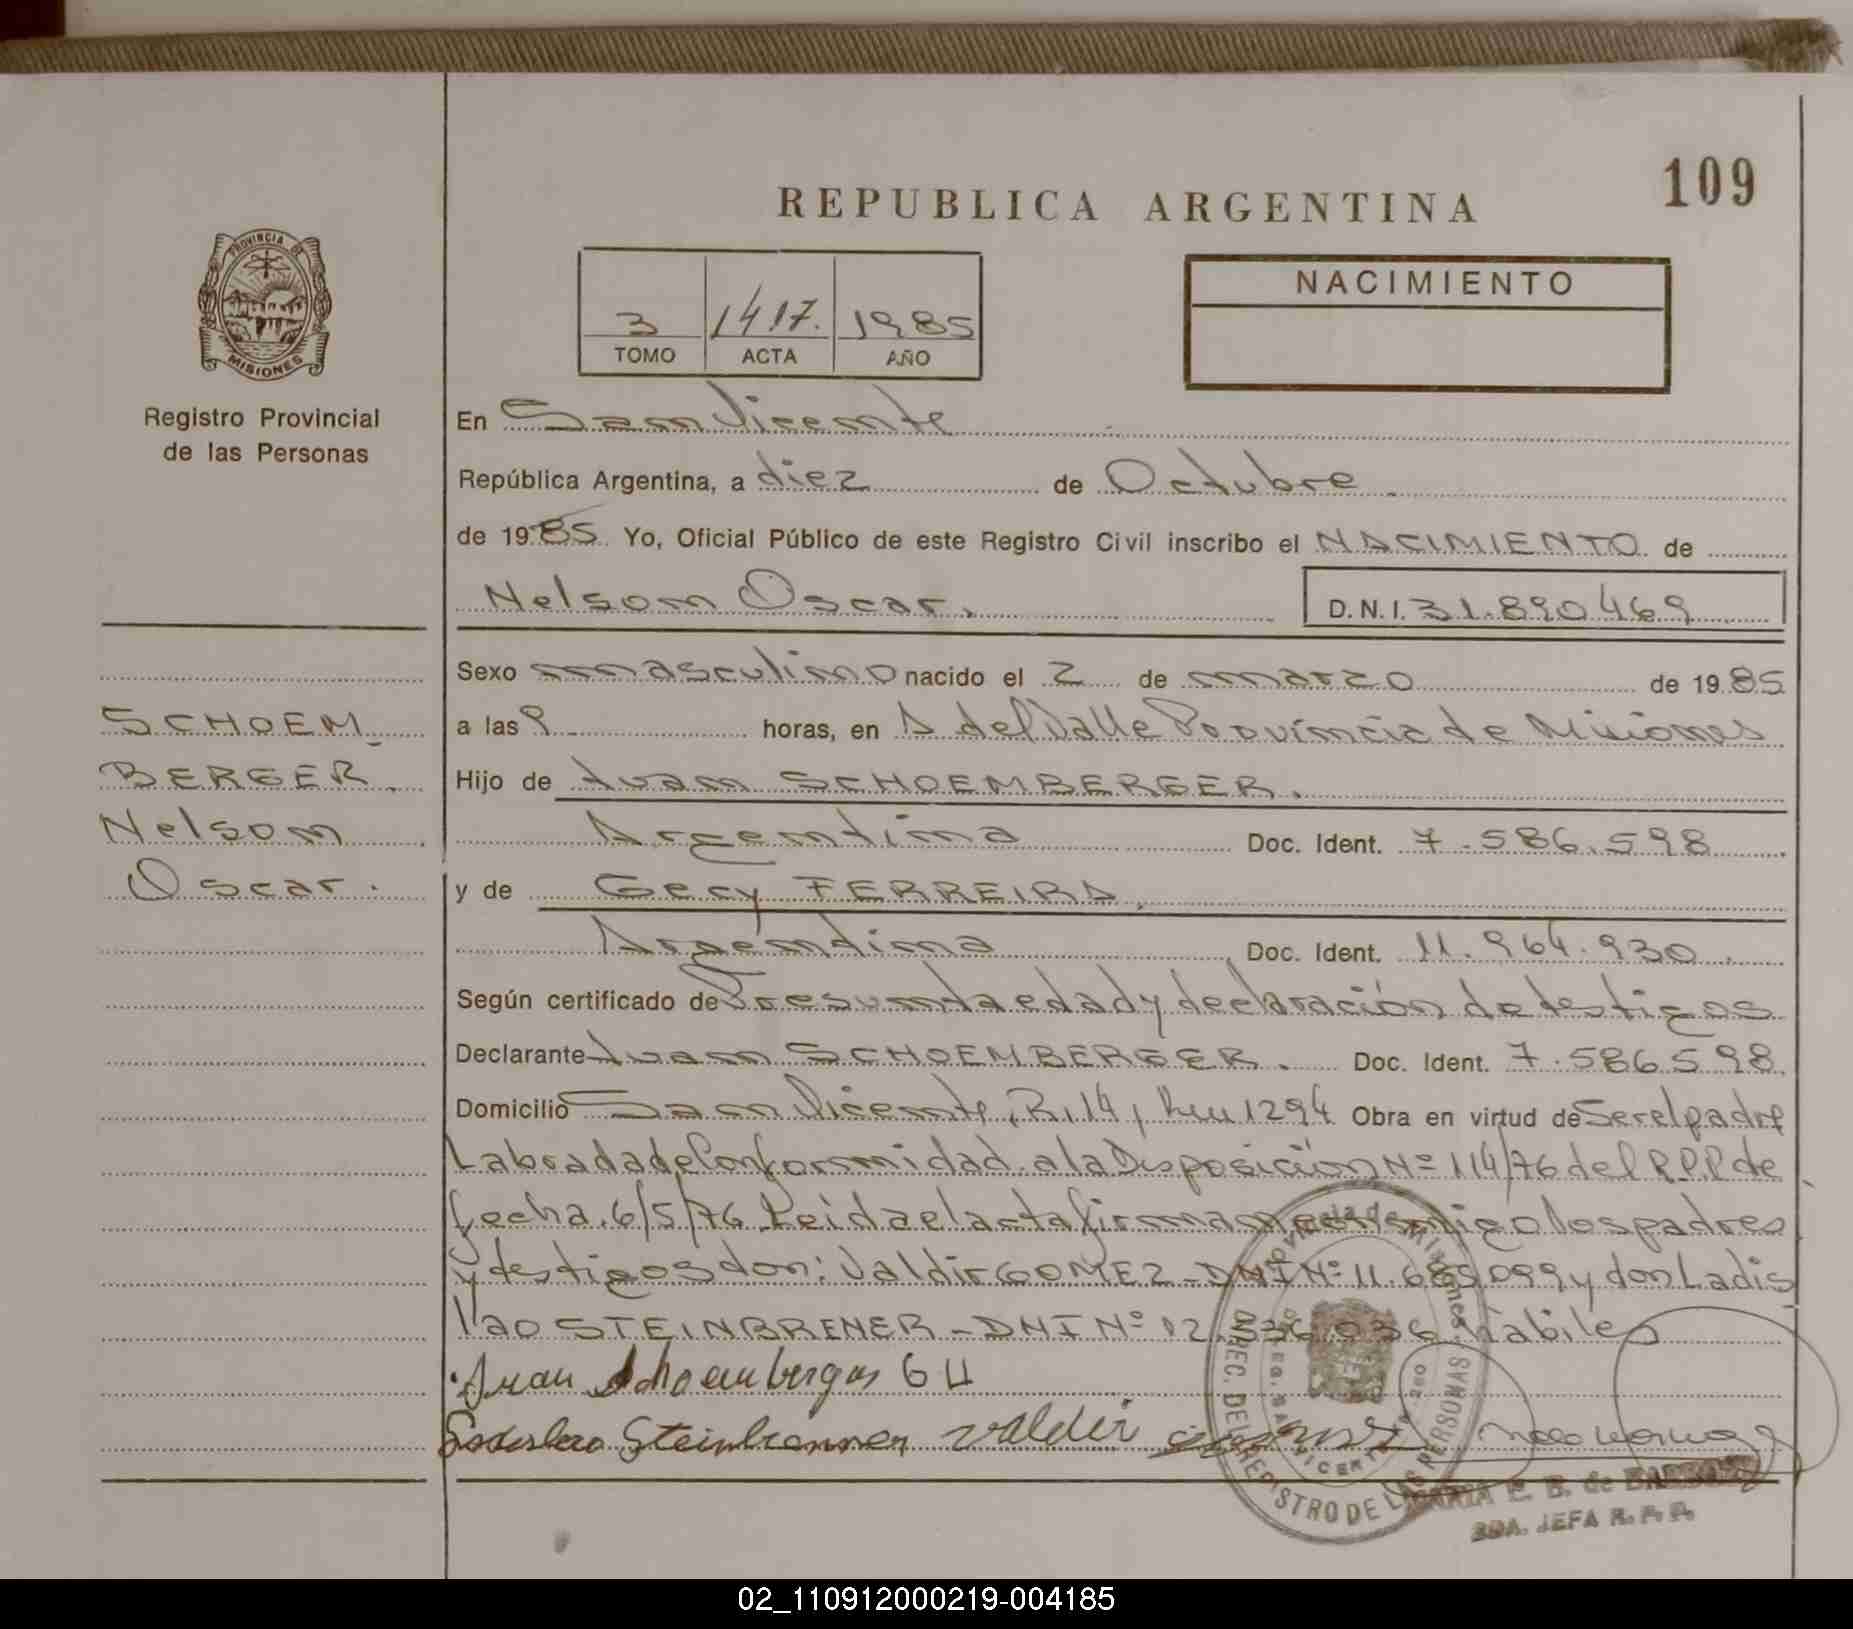 109
REPUBLICA ARGENTINA
PROVINCIA DE
MISIONES
Registro Provincial
de las Personas
3 1417. 1985
TOMO ACTA AÑO
NACIMIENTO
En San Vicente
República Argentina, a diez de Octubre
de 1985 Yo, Oficial Público de este Registro Civil inscribo el NACIMIENTO de
Nelson Oscar. D.N.I. 31.890469
SCHOEM_
BERGER.
Nelson
Oscar.
Sexo masculino nacido el 2 de marzo de 1985
a las 9 horas, en A del Valle Provincia de Misiones
Hijo de Juan SCHOEMBERGER.
Argentina Doc. Ident. 7.586.598
y de Gecy FERREIRA.
Argentina Doc. Ident. 11.964.930
Según certificado de Presunta edad y declaración de testigos
Declarante Juan SCHOEMBERGER. Doc. Ident. 7.586598
Domicilio San Vicente, R.14, Km 1294 Obra en virtud de Ser el padre
Labrada de Conformidad a la Disposición Nº 114/76 del R.P.P de
fecha 6/5/76 Leida el acta firman conmigo los padres
y testigos don: Valdir GOMEZ - DNI Nº 11.685099 y don Ladis
lao STEINBRENER - DNI Nº 12.336.036 hábiles
Juan Schoemberger G H
Steinbrenner Valdir
Provincia de Misiones
DIREC. DEL REGISTRO DE LAS PERSONAS
MARIA E. B. de
2DA. JEFA R. P. P.
02_110912000219-004185